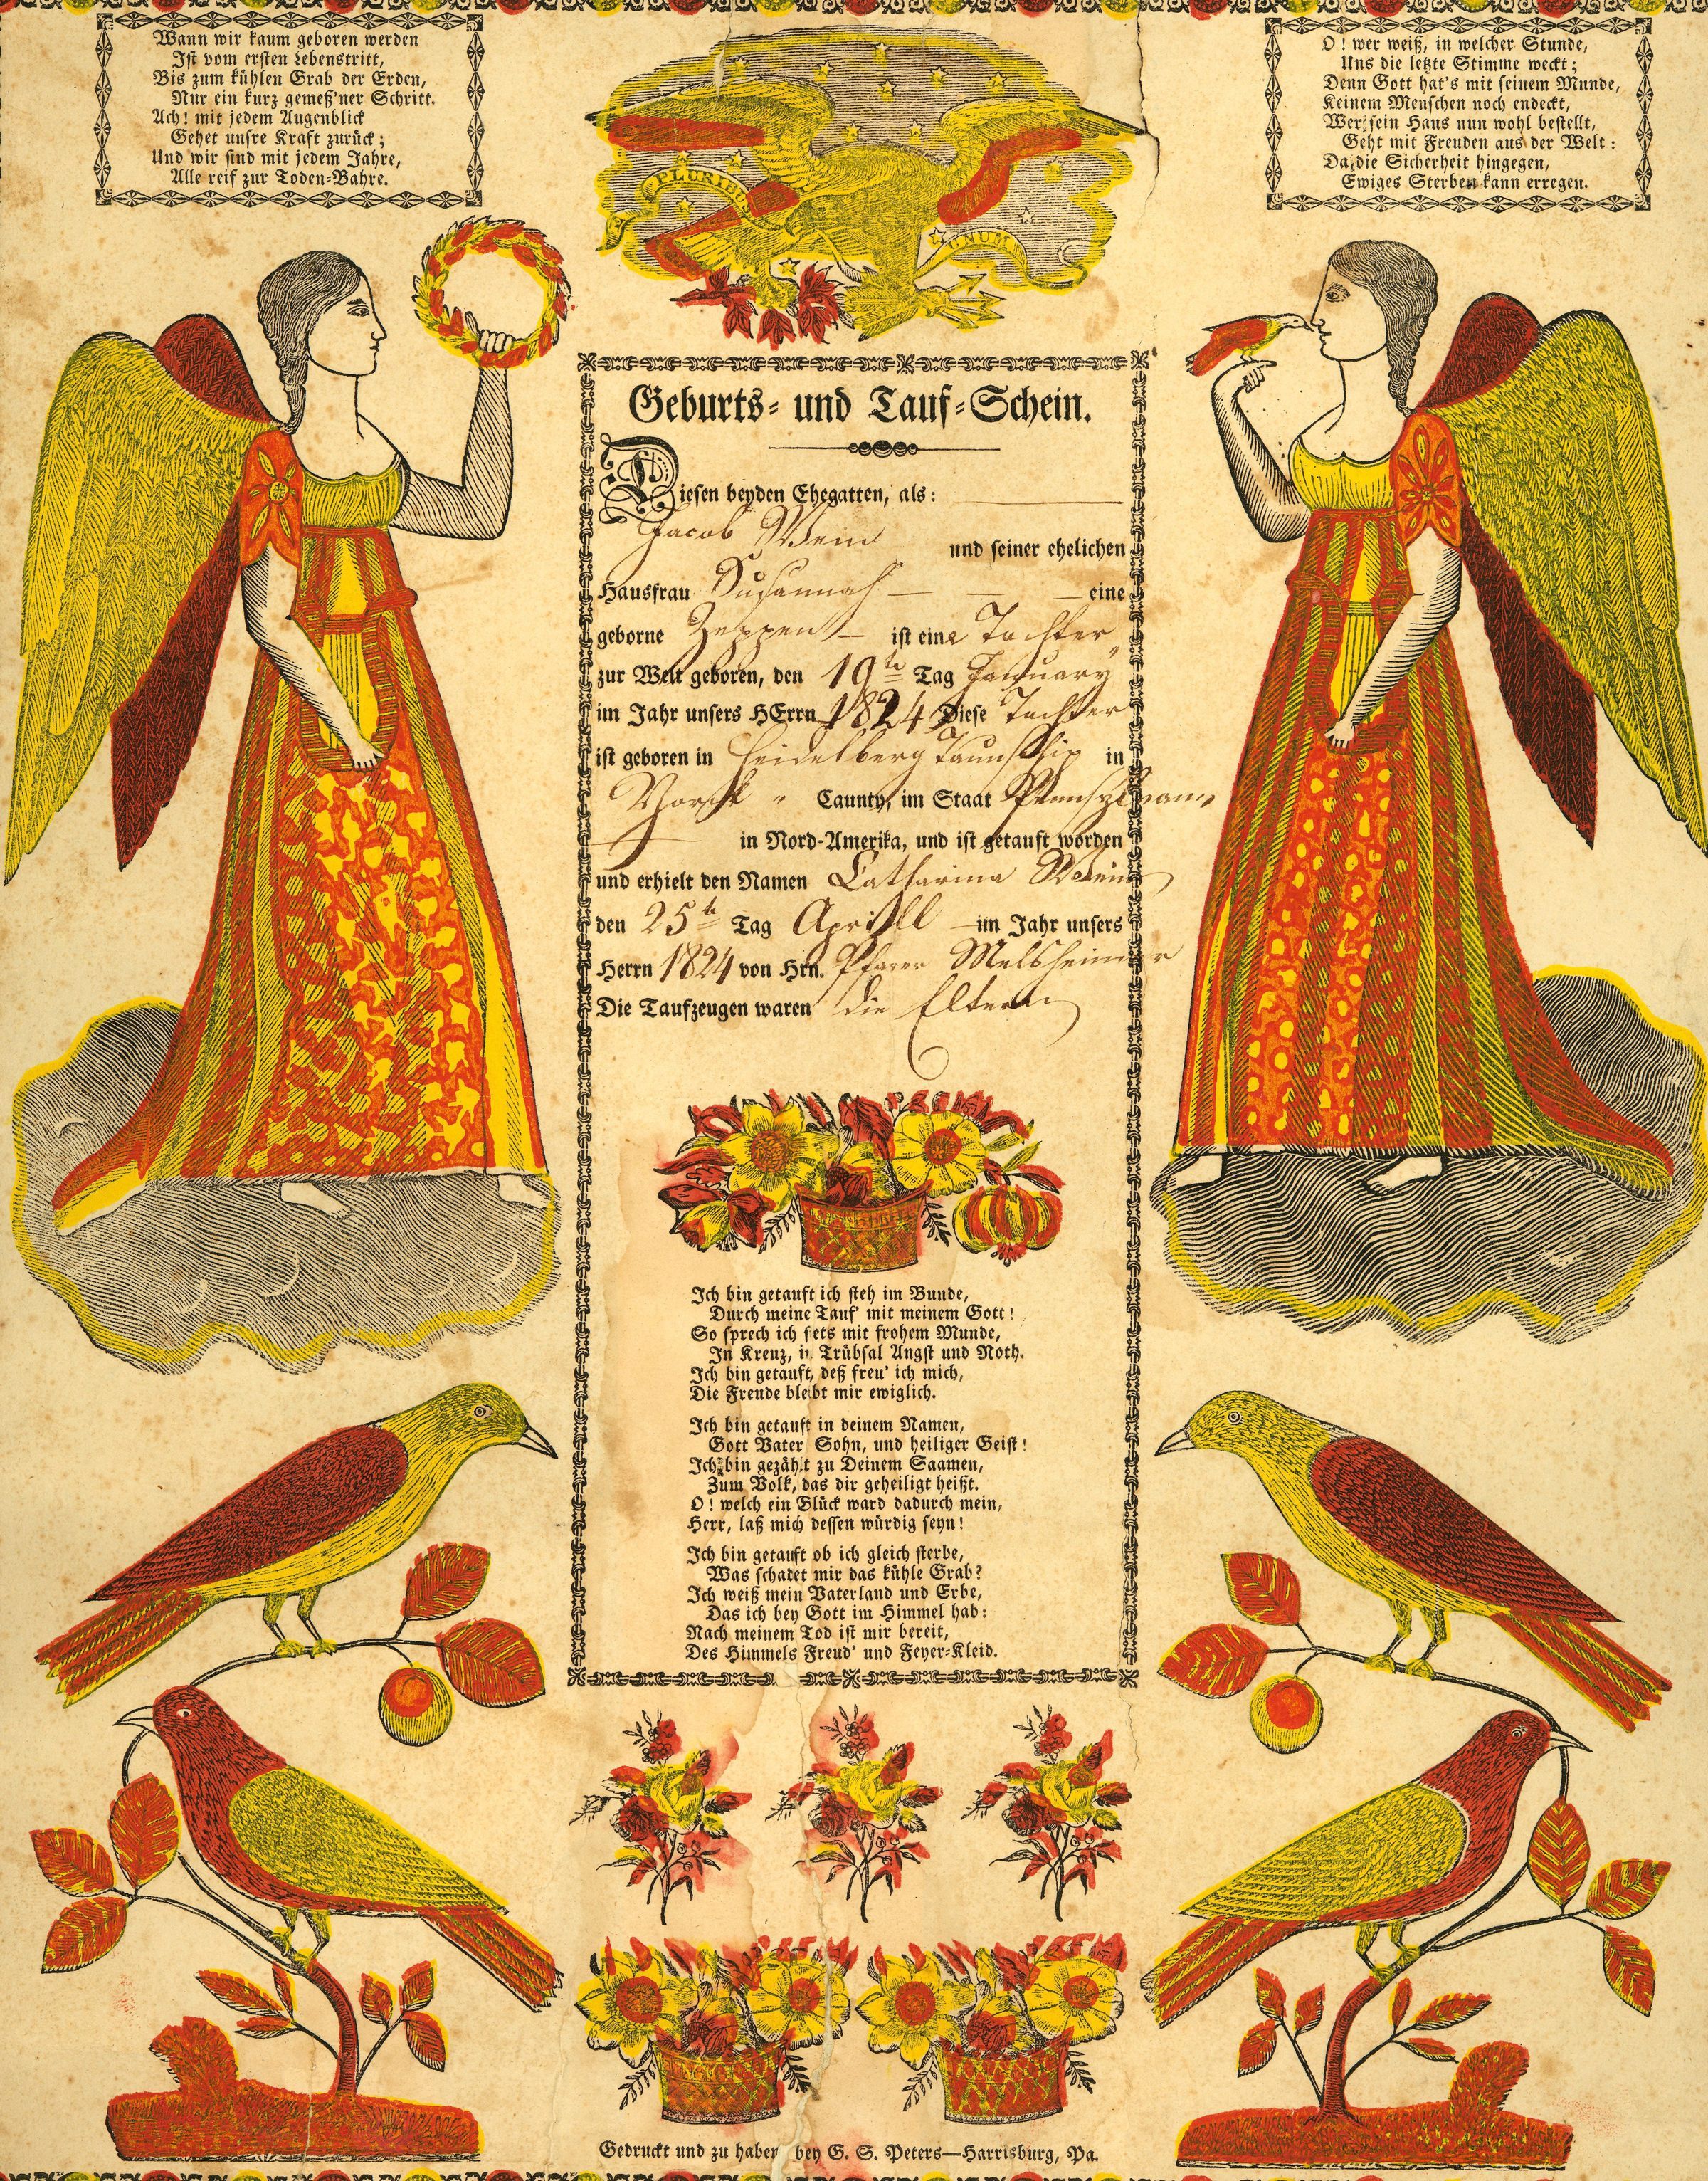 Wann wir kaum geboren werden
Ist vom ersten Lebenstritt,
Bis zum kühlen Grab der Erden,
Nur ein kurz gemeß'ner Schritt.
Ach! mit jedem Augenblick
Gehet unsre Kraft zurück;
Und wir sind mit jedem Jahre,
Alle reif zur Toden-Bahre.
PLURIBUS
UNUM
O! wer weiß, in welcher Stunde,
Uns die letzte Stimme weckt;
Denn Gott hat's mit seinem Munde,
Keinem Menschen noch endeckt,
Wer sein Haus nun wohl bestellt,
Geht mit Freuden aus der Welt:
Da die Sicherheit hingegen,
Ewiges Sterben kann erregen.
Geburts- und Tauf-Schein.
Diesen beyden Ehegatten, als:
Jacob Wein und seiner ehelichen
Hausfrau Susannah — — — eine
geborne Zeppen — ist eine Tochter
zur Welt geboren, den 19te Tag January
im Jahr unsers HErrn 1824 Diese Tochter
ist geboren in Heidelberg Taunschip in
Yorck " Caunty, im Staat Pennsylvani
in Nord-Amerika, und ist getauft worden
und erhielt den Namen Catharina Wein
den 25te Tag Aprill — im Jahr unsers
Herrn 1824 von Hrn. Pfarer Melsheimer
Die Taufzeugen waren die Eltern
Ich bin getauft ich steh im Bunde,
Durch meine Tauf' mit meinem Gott!
So sprech ich stets mit frohem Munde,
In Kreuz, in Trübsal Angst und Noth.
Ich bin getauft, deß freu' ich mich,
Die Freude bleibt mir ewiglich.
Ich bin getauft in deinem Namen,
Gott Vater Sohn, und heiliger Geist!
Ich bin gezählt zu Deinem Saamen,
Zum Volk, das dir geheiligt heißt.
O! welch ein Glück ward dadurch mein,
Herr, laß mich dessen würdig seyn!
Ich bin getauft ob ich gleich sterbe,
Was schadet mir das kühle Grab?
Ich weiß mein Vaterland und Erbe,
Das ich bey Gott im Himmel hab:
Nach meinem Tod ist mir bereit,
Des Himmels Freud' und Feyer-Kleid.
Gedruckt und zu haben bey G. S. Peters—Harrisburg, Pa.